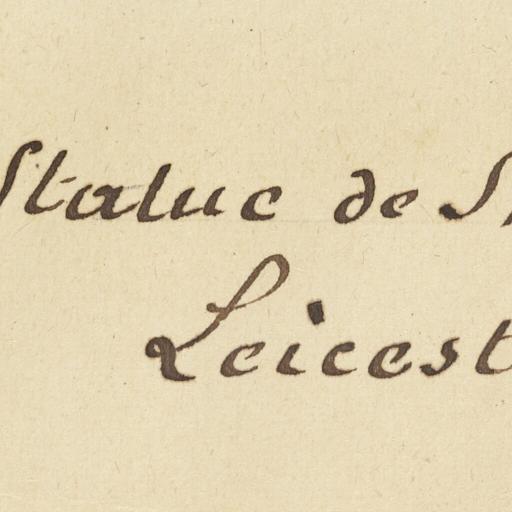 Statue de S
Leicest